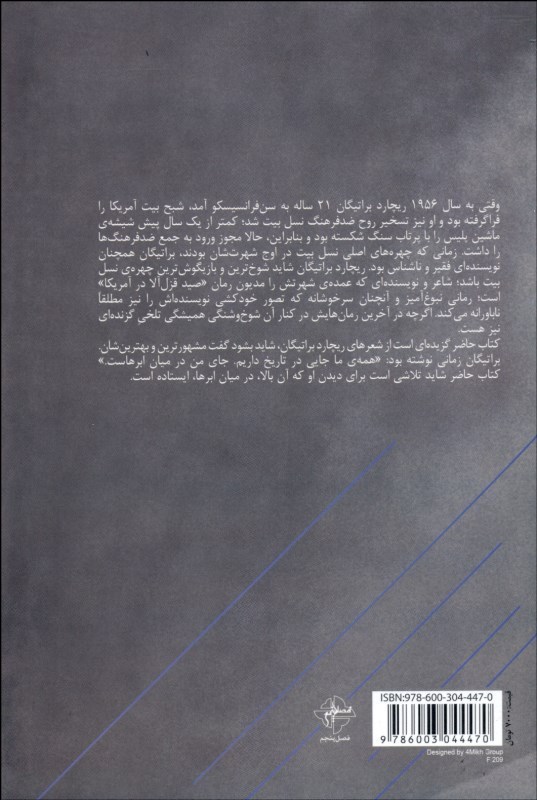 وقتی به سال ۱۹۵۶ ریچارد براتیگان ۲۱ ساله به سن‌فرانسیسکو آمد، شبح بیت آمریکا را
فراگرفته بود و او نیز تسخیر روح ضدفرهنگ نسل بیت شد؛ کمتر از یک سال پیش شیشه‌ی
ماشین پلیس را با پرتاب سنگ شکسته بود و بنابراین، حالا مجوز ورود به جمع ضدفرهنگ‌ها
را داشت. زمانی که چهره‌های اصلی نسل بیت در اوج شهرت‌شان بودند، براتیگان همچنان
نویسنده‌ای فقیر و ناشناس بود. ریچارد براتیگان شاید شوخ‌ترین و بازیگوش‌ترین چهره‌ی نسل
بیت باشد؛ شاعر و نویسنده‌ای که عمده‌ی شهرتش را مدیون رمان «صید قزل‌آلا در آمریکا»
است؛ رمانی نبوغ‌آمیز و آنچنان سرخوشانه که تصور خودکشی نویسنده‌اش را نیز مطلقاً
ناباورانه می‌کند. اگرچه در آخرین رمان‌هایش در کنار آن شوخ‌وشنگی همیشگی تلخی گزنده‌ای
نیز هست.
کتاب حاضر گزیده‌ای است از شعرهای ریچارد براتیگان، شاید بشود گفت مشهورترین و بهترین‌شان.
براتیگان زمانی نوشته بود: «همه‌ی ما جایی در تاریخ داریم. جای من در میان ابرهاست.»
کتاب حاضر شاید تلاشی است برای دیدن او که آن بالا، در میان ابرها، ایستاده است.
فصل پنجم
ISBN:978-600-304-447-0
9 786003 044470
قیمت: ۷۰۰۰ تومان
Designed by 4Mikh Group
F 209